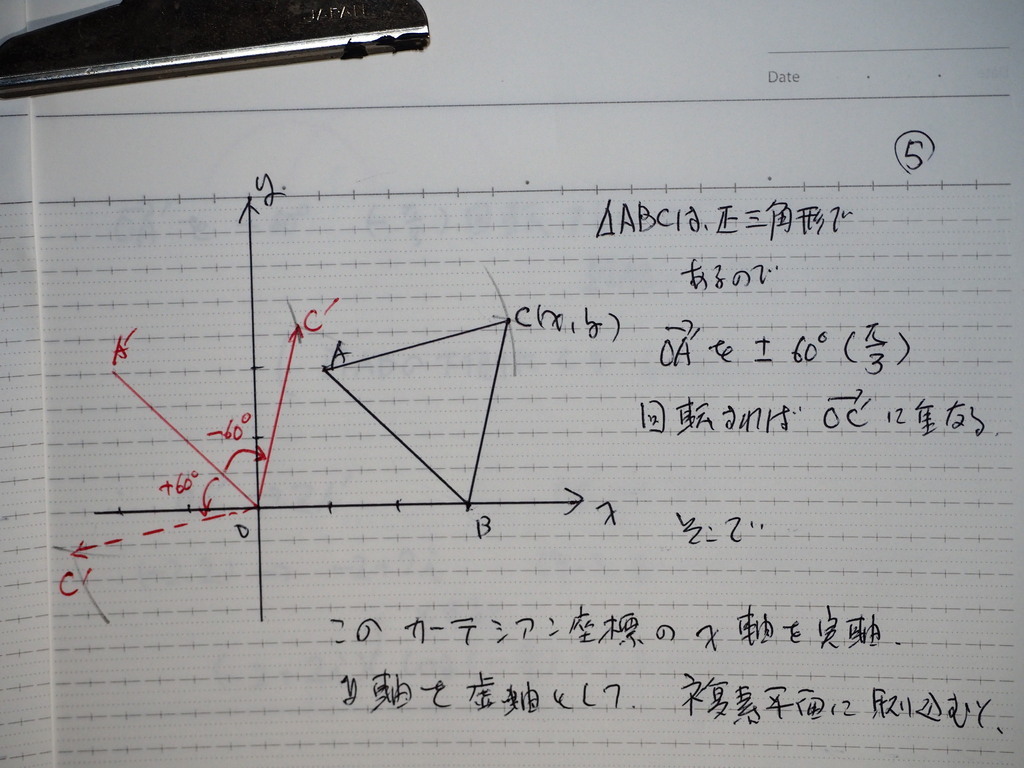 JAPAN
Date
⑤
y
△ABCは、正三角形で
あるので
C(x, y)
C'
A
A'
OA'を ± 60° (π/3)
回転すれば OC' に重なる
-60°
+60°
O
B
x
そこで
C'
このカーテシアン座標の x 軸を実軸、
y 軸を虚軸として、複素平面に取り込むと、